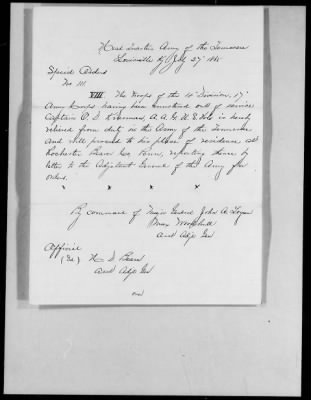 Head Quarters Army of the Tennessee
Louisville Ky July 27" 1865
Special Orders
No 111.
VIII. The troops of the 4" Division, 17"
Army Corps having been mustered out of service
Captain A. A. G. U. S. Vols is hereby
relieved from duty in the Army of the Tennessee
and will proceed to his place of residence at
Rochester Beaver Co, Penn, reporting thence by
letter to the Adjutant General of the Army for
orders.
x x x x
By command of Major General John A Logan
Max Woodhull
Asst Adjt Gen
Official
(Sd)
Asst Adjt Gen